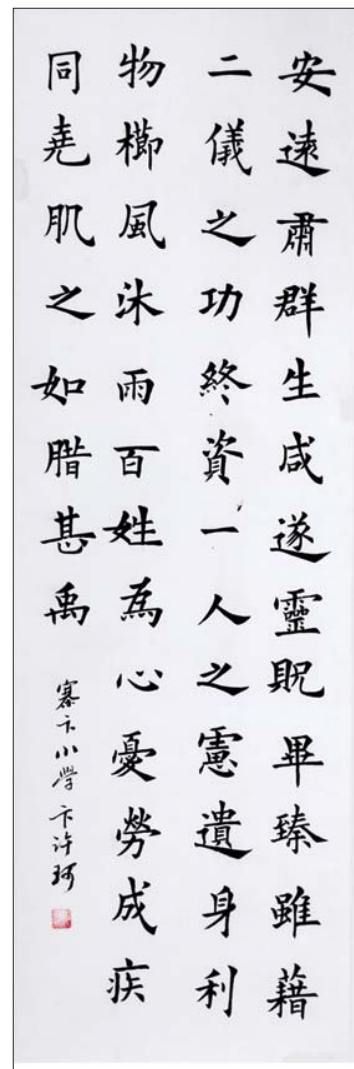 安遠肅群生咸遂靈貺畢臻雖藉
二儀之功終資一人之慮遺身利
物櫛風沐雨百姓為心憂勞成疾
同堯肌之如腊甚禹
寨卞小学 卞许珂